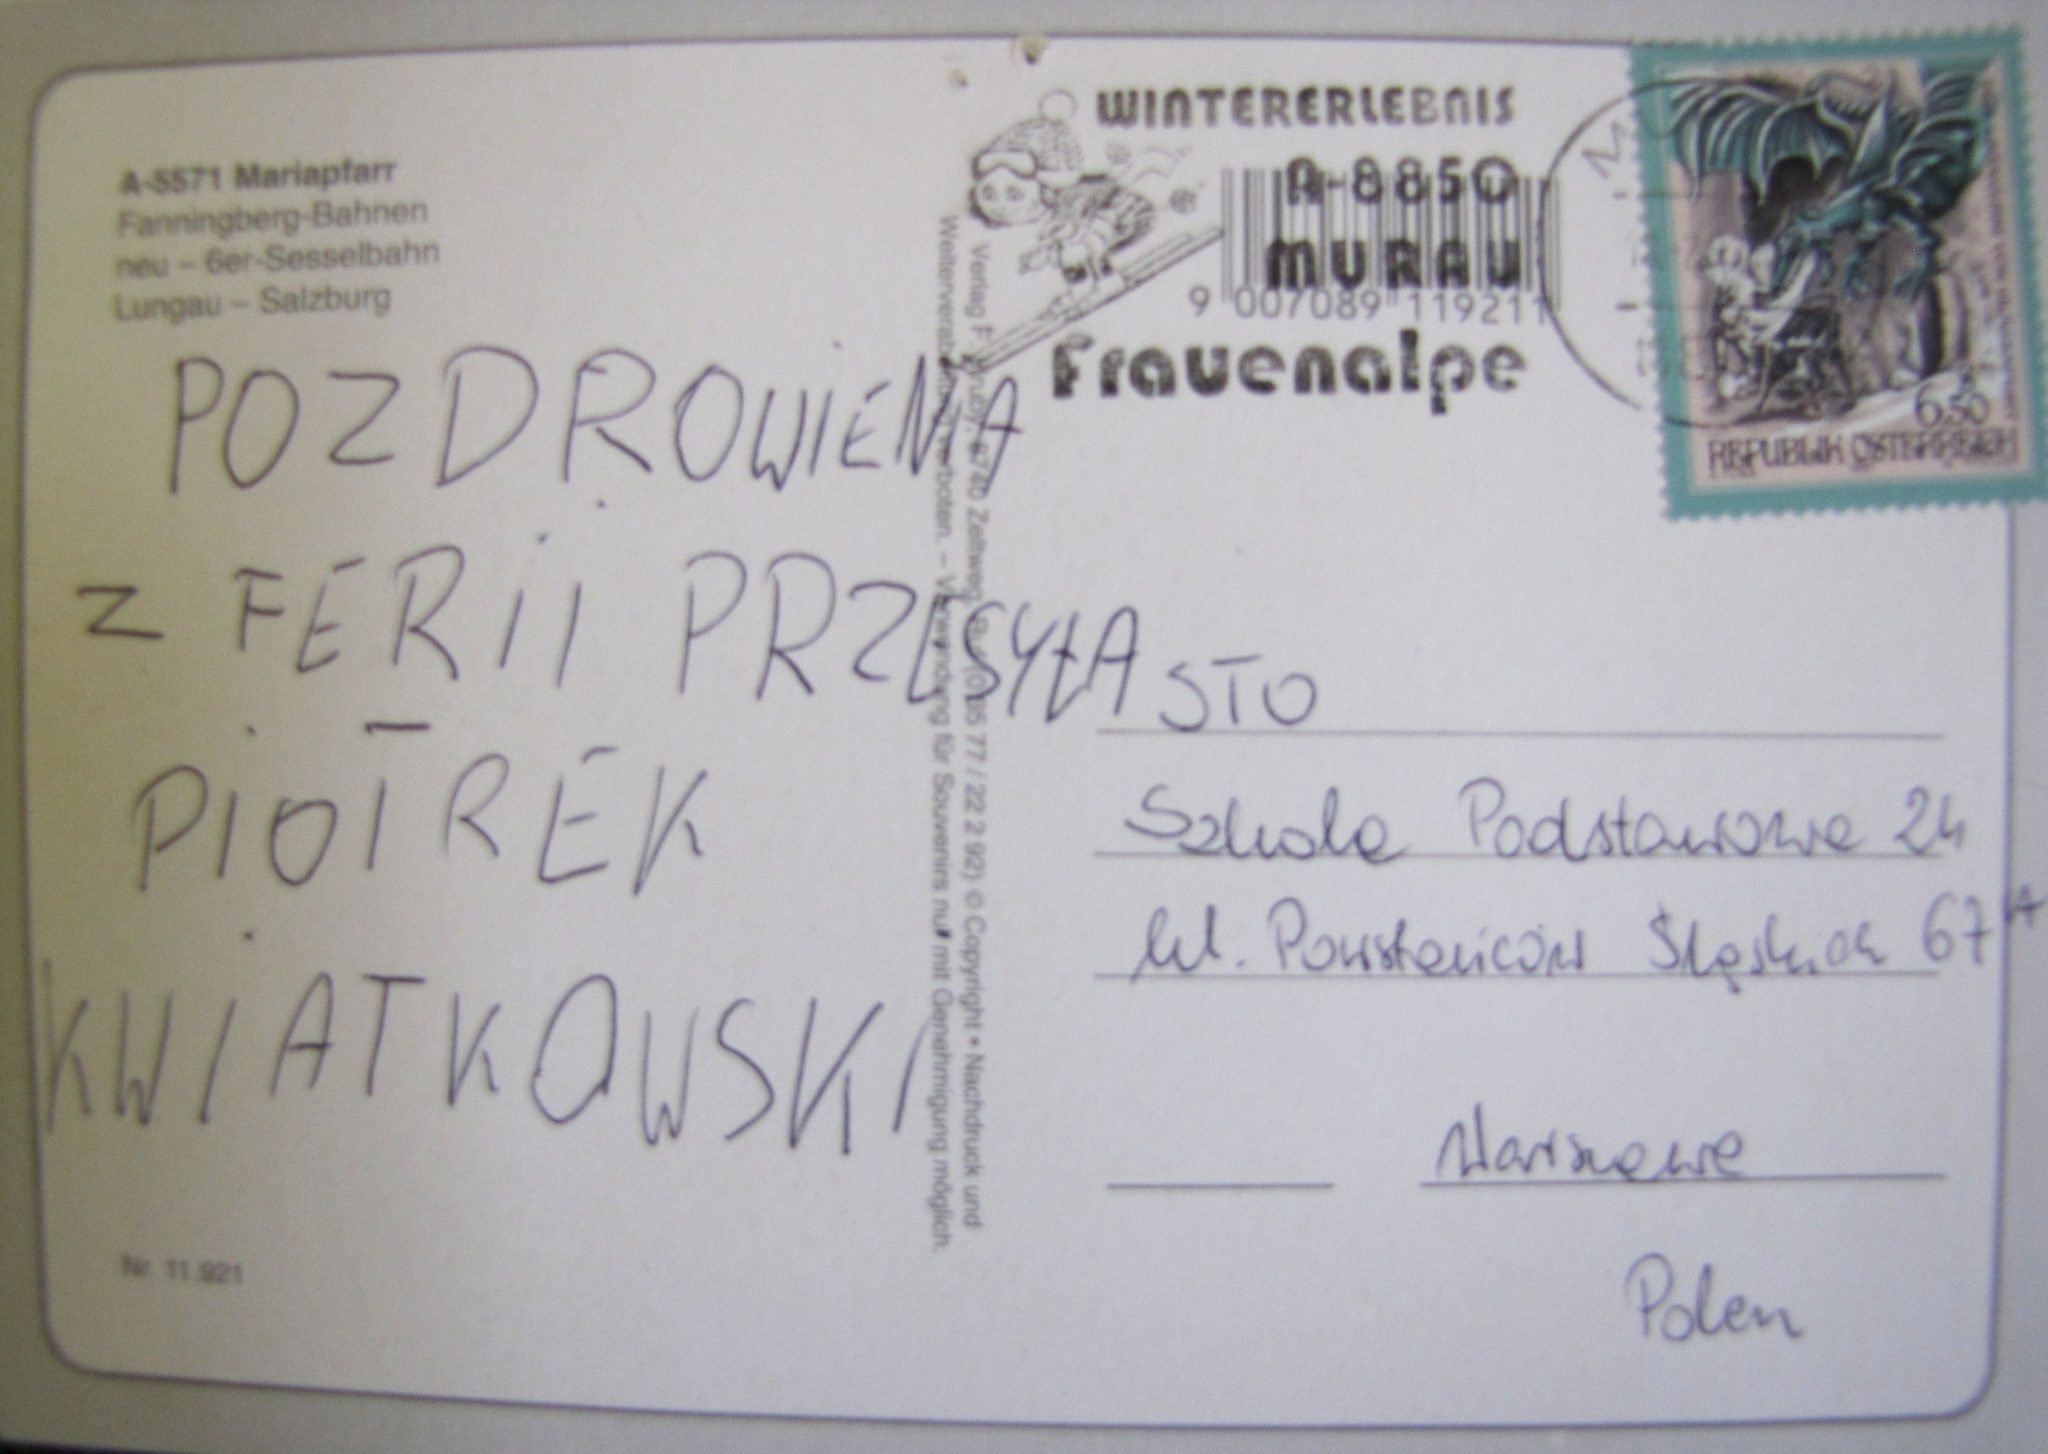 A-5571 Mariapfarr
Fanningberg-Bahnen
neu – 6er-Sesselbahn
Lungau – Salzburg
POZDROWIENA
Z FERII PRZESYŁA
PIOTREK
KWIATKOWSKI
Nr. 11.921
Verlag F. Hruby, 8740 Zeltweg, (0 35 77 / 22 2 92) © Copyright • Nachdruck und
Weiterverarbeitung verboten. – Verwendung für Souvenirs nur mit Genehmigung möglich.
WINTERERLEBNIS
A-8850
MURAU
9 007089 119211
Frauenalpe
6.50
REPUBLIK ÖSTERREICH
STO
Szkoła Podstawowa 24
ul. Powstańców Śląskich 67A
Warszawa
Polen